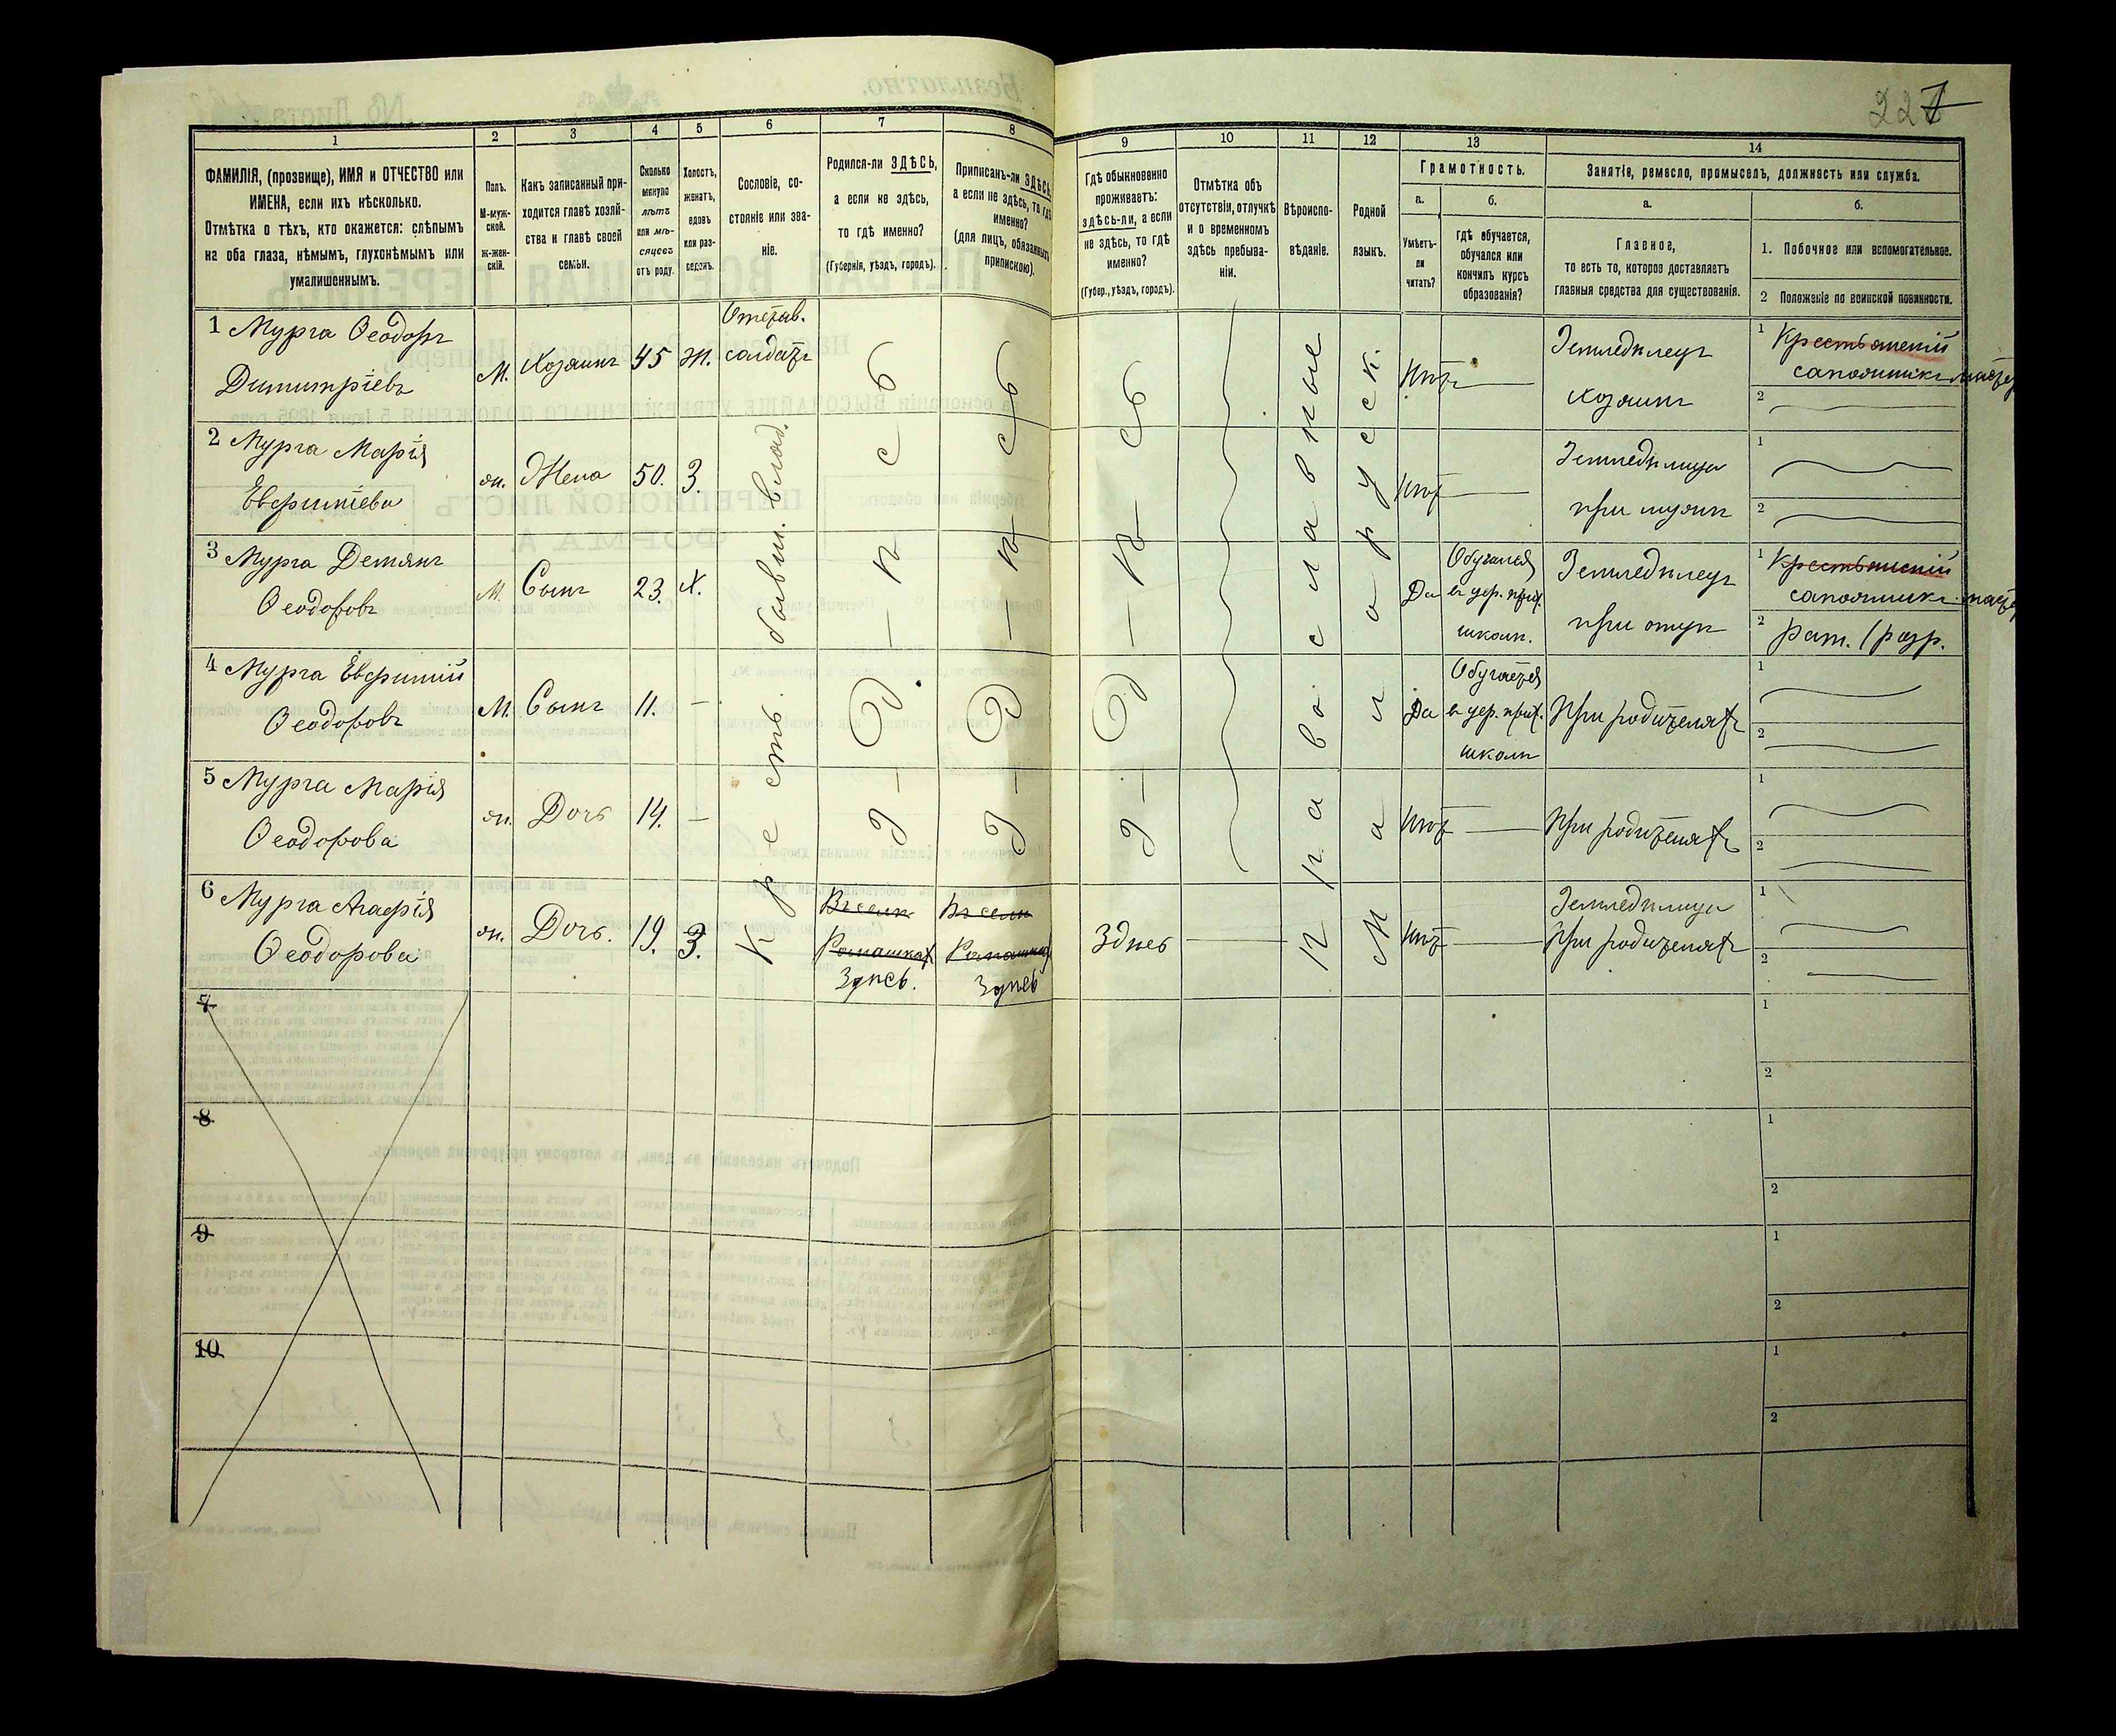 227
1
2
3
4
5
6
7
8
9
10
11
12
13
14
ФАМИЛІЯ, (прозвище), ИМЯ и ОТЧЕСТВО или
ИМЕНА, если ихъ нѣсколько.
Отмѣтка о тѣхъ, кто окажется: слѣпымъ
на оба глаза, нѣмымъ, глухонѣмымъ или
умалишеннымъ.
Полъ.
М-муж-
ской.
ж-жен-
скій.
Какъ записанный при-
ходится главѣ хозяй-
ства и главѣ своей
семьи.
Сколько
минуло
лѣтъ
или мѣ-
сяцевъ
отъ роду.
Холостъ,
женатъ,
вдовъ
или раз-
веденъ.
Сословіе, со-
стояніе или зва-
ніе.
Родился-ли ЗДѢСЬ,
а если не здѣсь,
то гдѣ именно?
(Губернія, уѣздъ, городъ).
Приписанъ-ли ЗДѢСЬ,
а если не здѣсь, то гдѣ
именно?
(для лицъ, обязанныхъ
припискою).
Гдѣ обыкновенно
проживаетъ:
здѣсь-ли, а если
не здѣсь, то гдѣ
именно?
(Губер., уѣздъ, городъ).
Отмѣтка объ
отсутствіи, отлучкѣ
и о временномъ
здѣсь пребыва-
ніи.
Вѣроиспо-
вѣданіе.
Родной
языкъ.
Грамотность.
а.
б.
Умѣетъ-
ли
читать?
гдѣ обучается,
обучался или
кончилъ курсъ
образованія?
Занятіе, ремесло, промыселъ, должность или служба.
а.
б.
Главное,
то есть то, которое доставляетъ
главныя средства для существованія.
1. Побочное или вспомогательное.
2 Положеніе по воинской повинности.
1 Мурга Ѳеодоръ
Димитріевъ
М.
Хозяинъ
45
Ж.
Отстав.
солдатъ
Нѣтъ
Земледѣлецъ
хозяинъ
1 Крестьянскій
сапожникъ мастер
2
2 Мурга Марія
Евфиміева
ж.
Жена
50.
З.
Нѣт
Земледѣлица
при мужѣ
1
2
3 Мурга Демянъ
Ѳеодоровъ
М.
Сынъ
23.
Х.
Да
Обучался
въ цер. прих.
школѣ.
Земледѣлецъ
при отцѣ
1 Крестьянскій
сапожникъ мастер
2 Рат. 1 разр.
4 Мурга Евфимій
Ѳеодоровъ
М.
Сынъ
11.
—
Да
Обучается
въ цер. прих.
школѣ
При родителяхъ
1
2
5 Мурга Марія
Ѳеодорова
ж.
Дочь
14.
—
Нѣт
При родителяхъ
1
2
6 Мурга Агафія
Ѳеодорова
ж.
Дочь.
19.
З.
Крестъ. бывш. влад.
З-д-ѣ-сь
З-д-ѣ-сь
З-д-ѣ-сь
Въ селѣ
Ромашках
Здѣсь.
Въ селѣ
Ромашках
Здѣсь
Здѣсь
Православные
Малорусск.
Нѣт
Земледѣлица
При родителяхъ
1
2
7
1
2
8
1
2
9
1
2
10
1
2